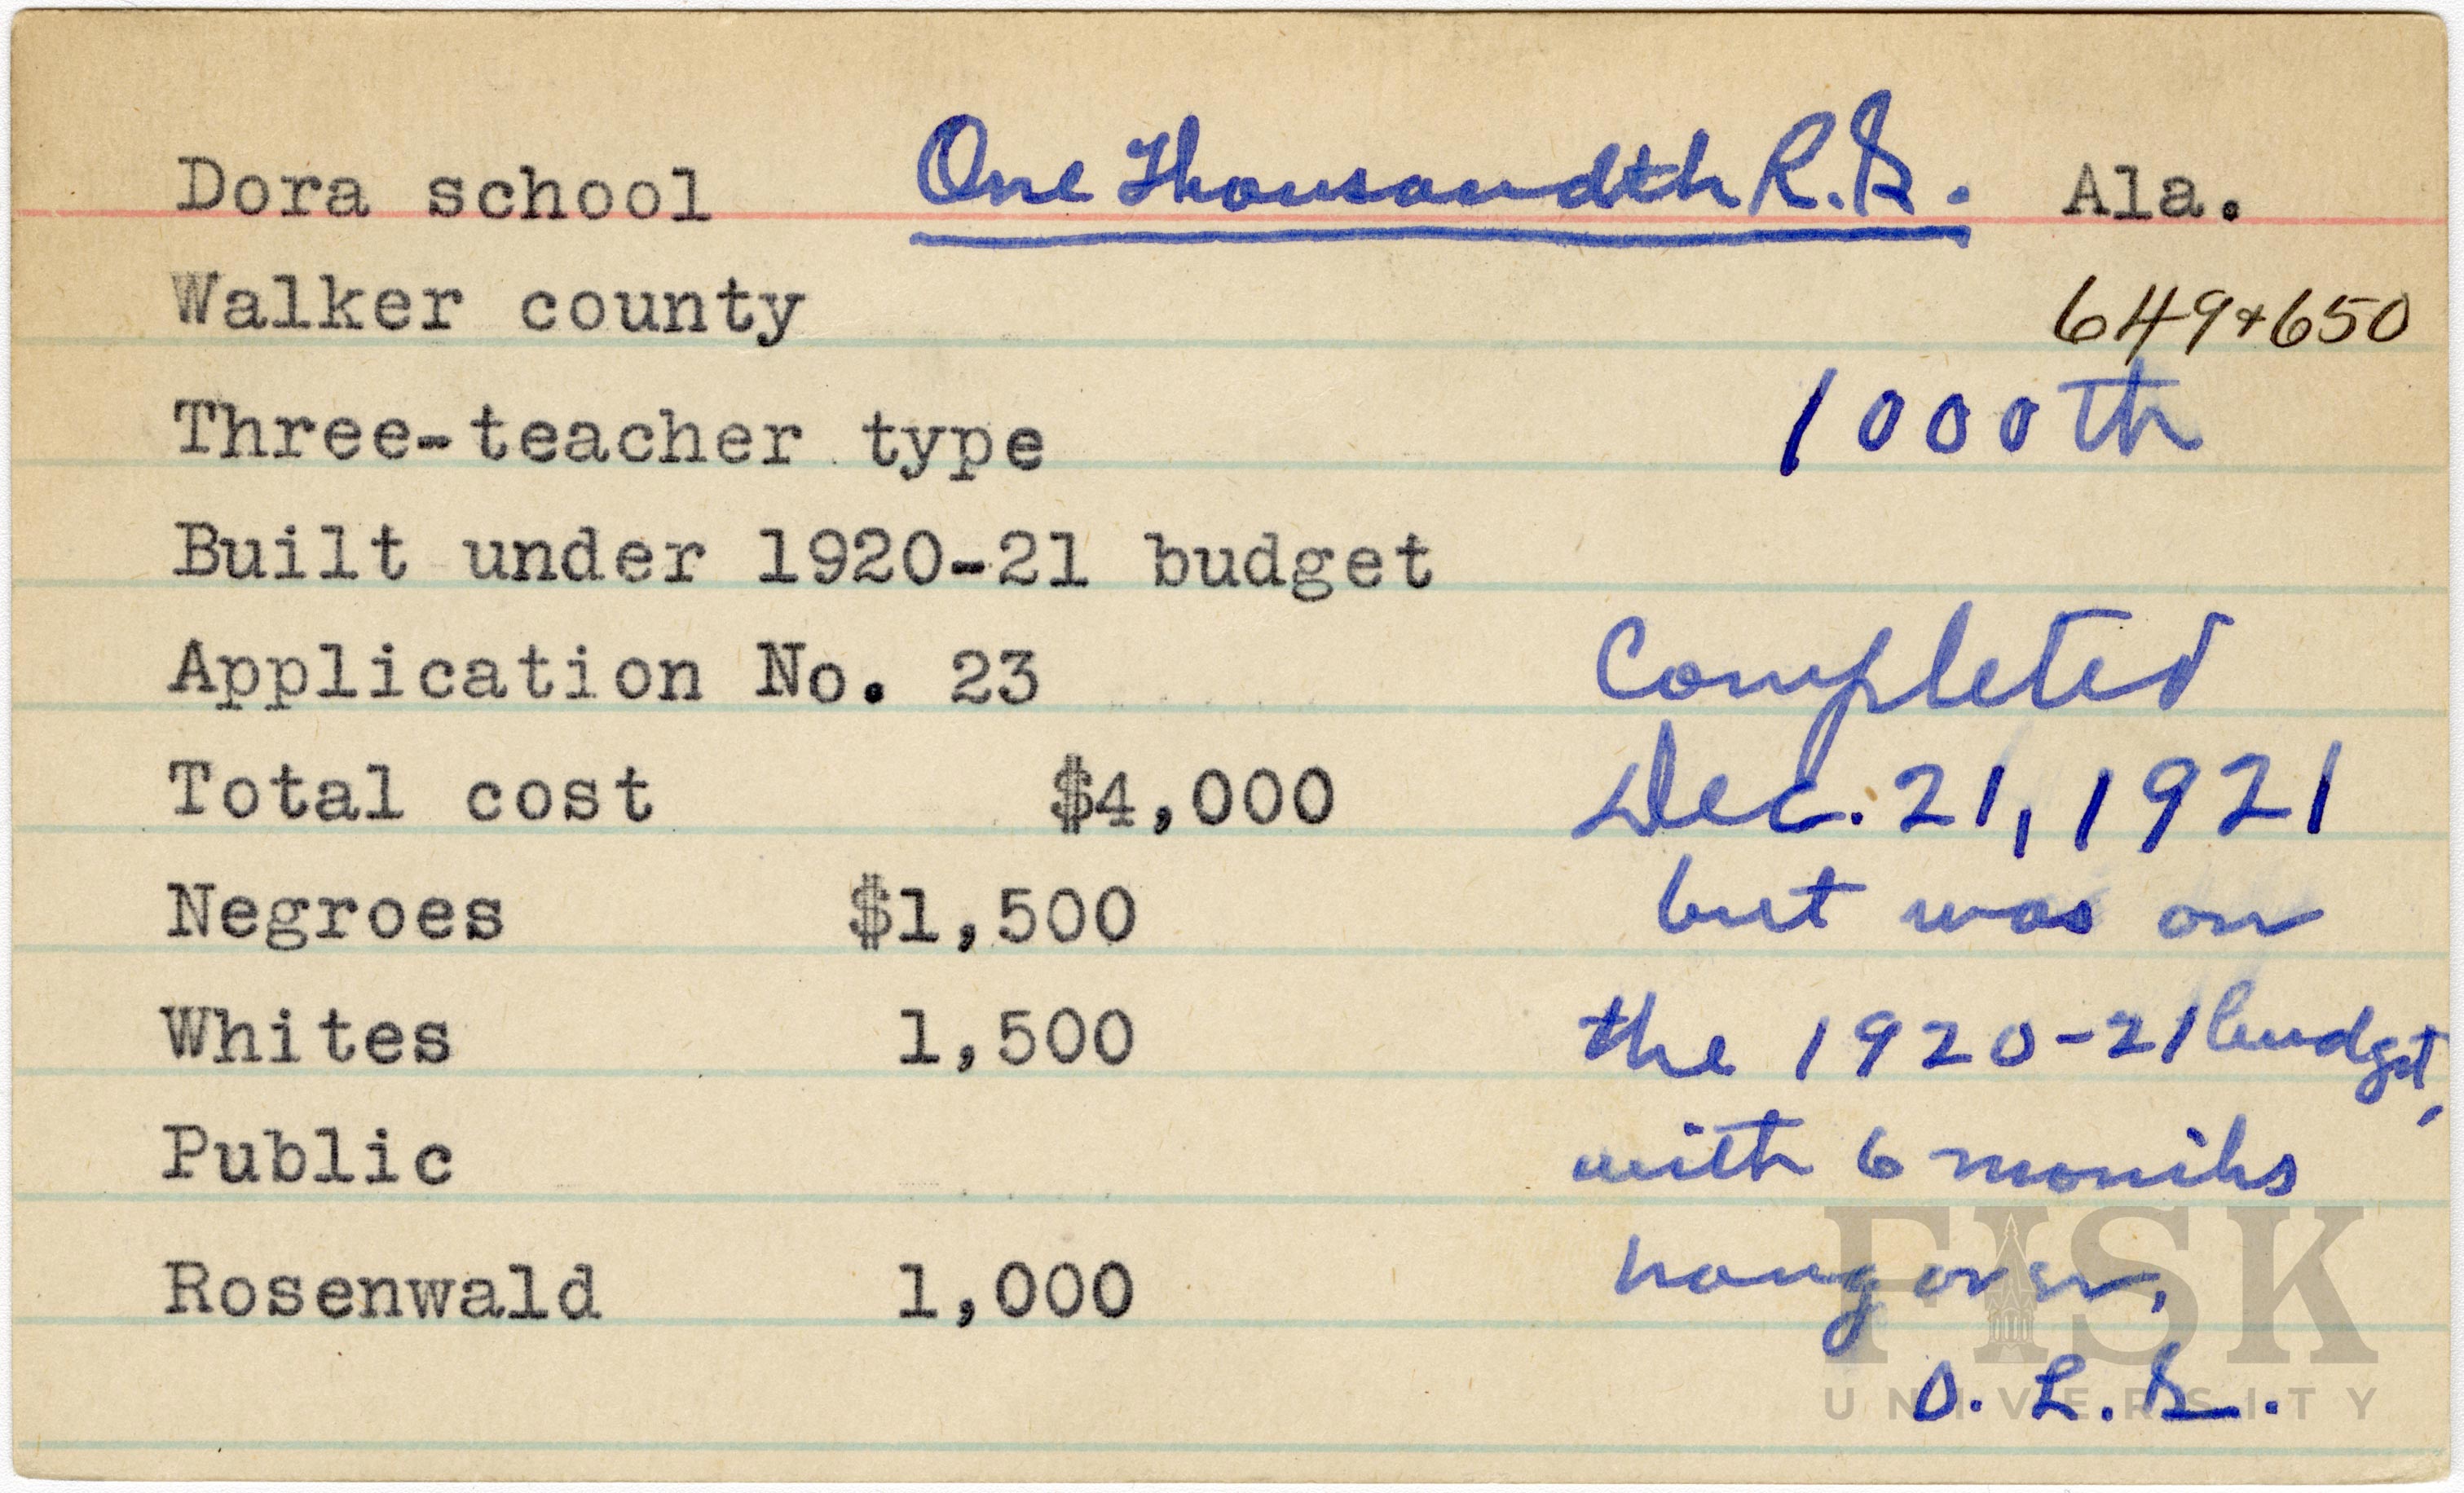 Dora school One Thousandth R.S. Ala.
Walker county 649+650
Three-teacher type 1000th
Built under 1920-21 budget
Application No. 23 Completed
Total cost $4,000 Dec. 21, 1921
Negroes $1,500 but was on
Whites 1,500 the 1920-21 budget,
Public with 6 months
Rosenwald 1,000 hang over.
O. L. S.
FISK
UNIVERSITY